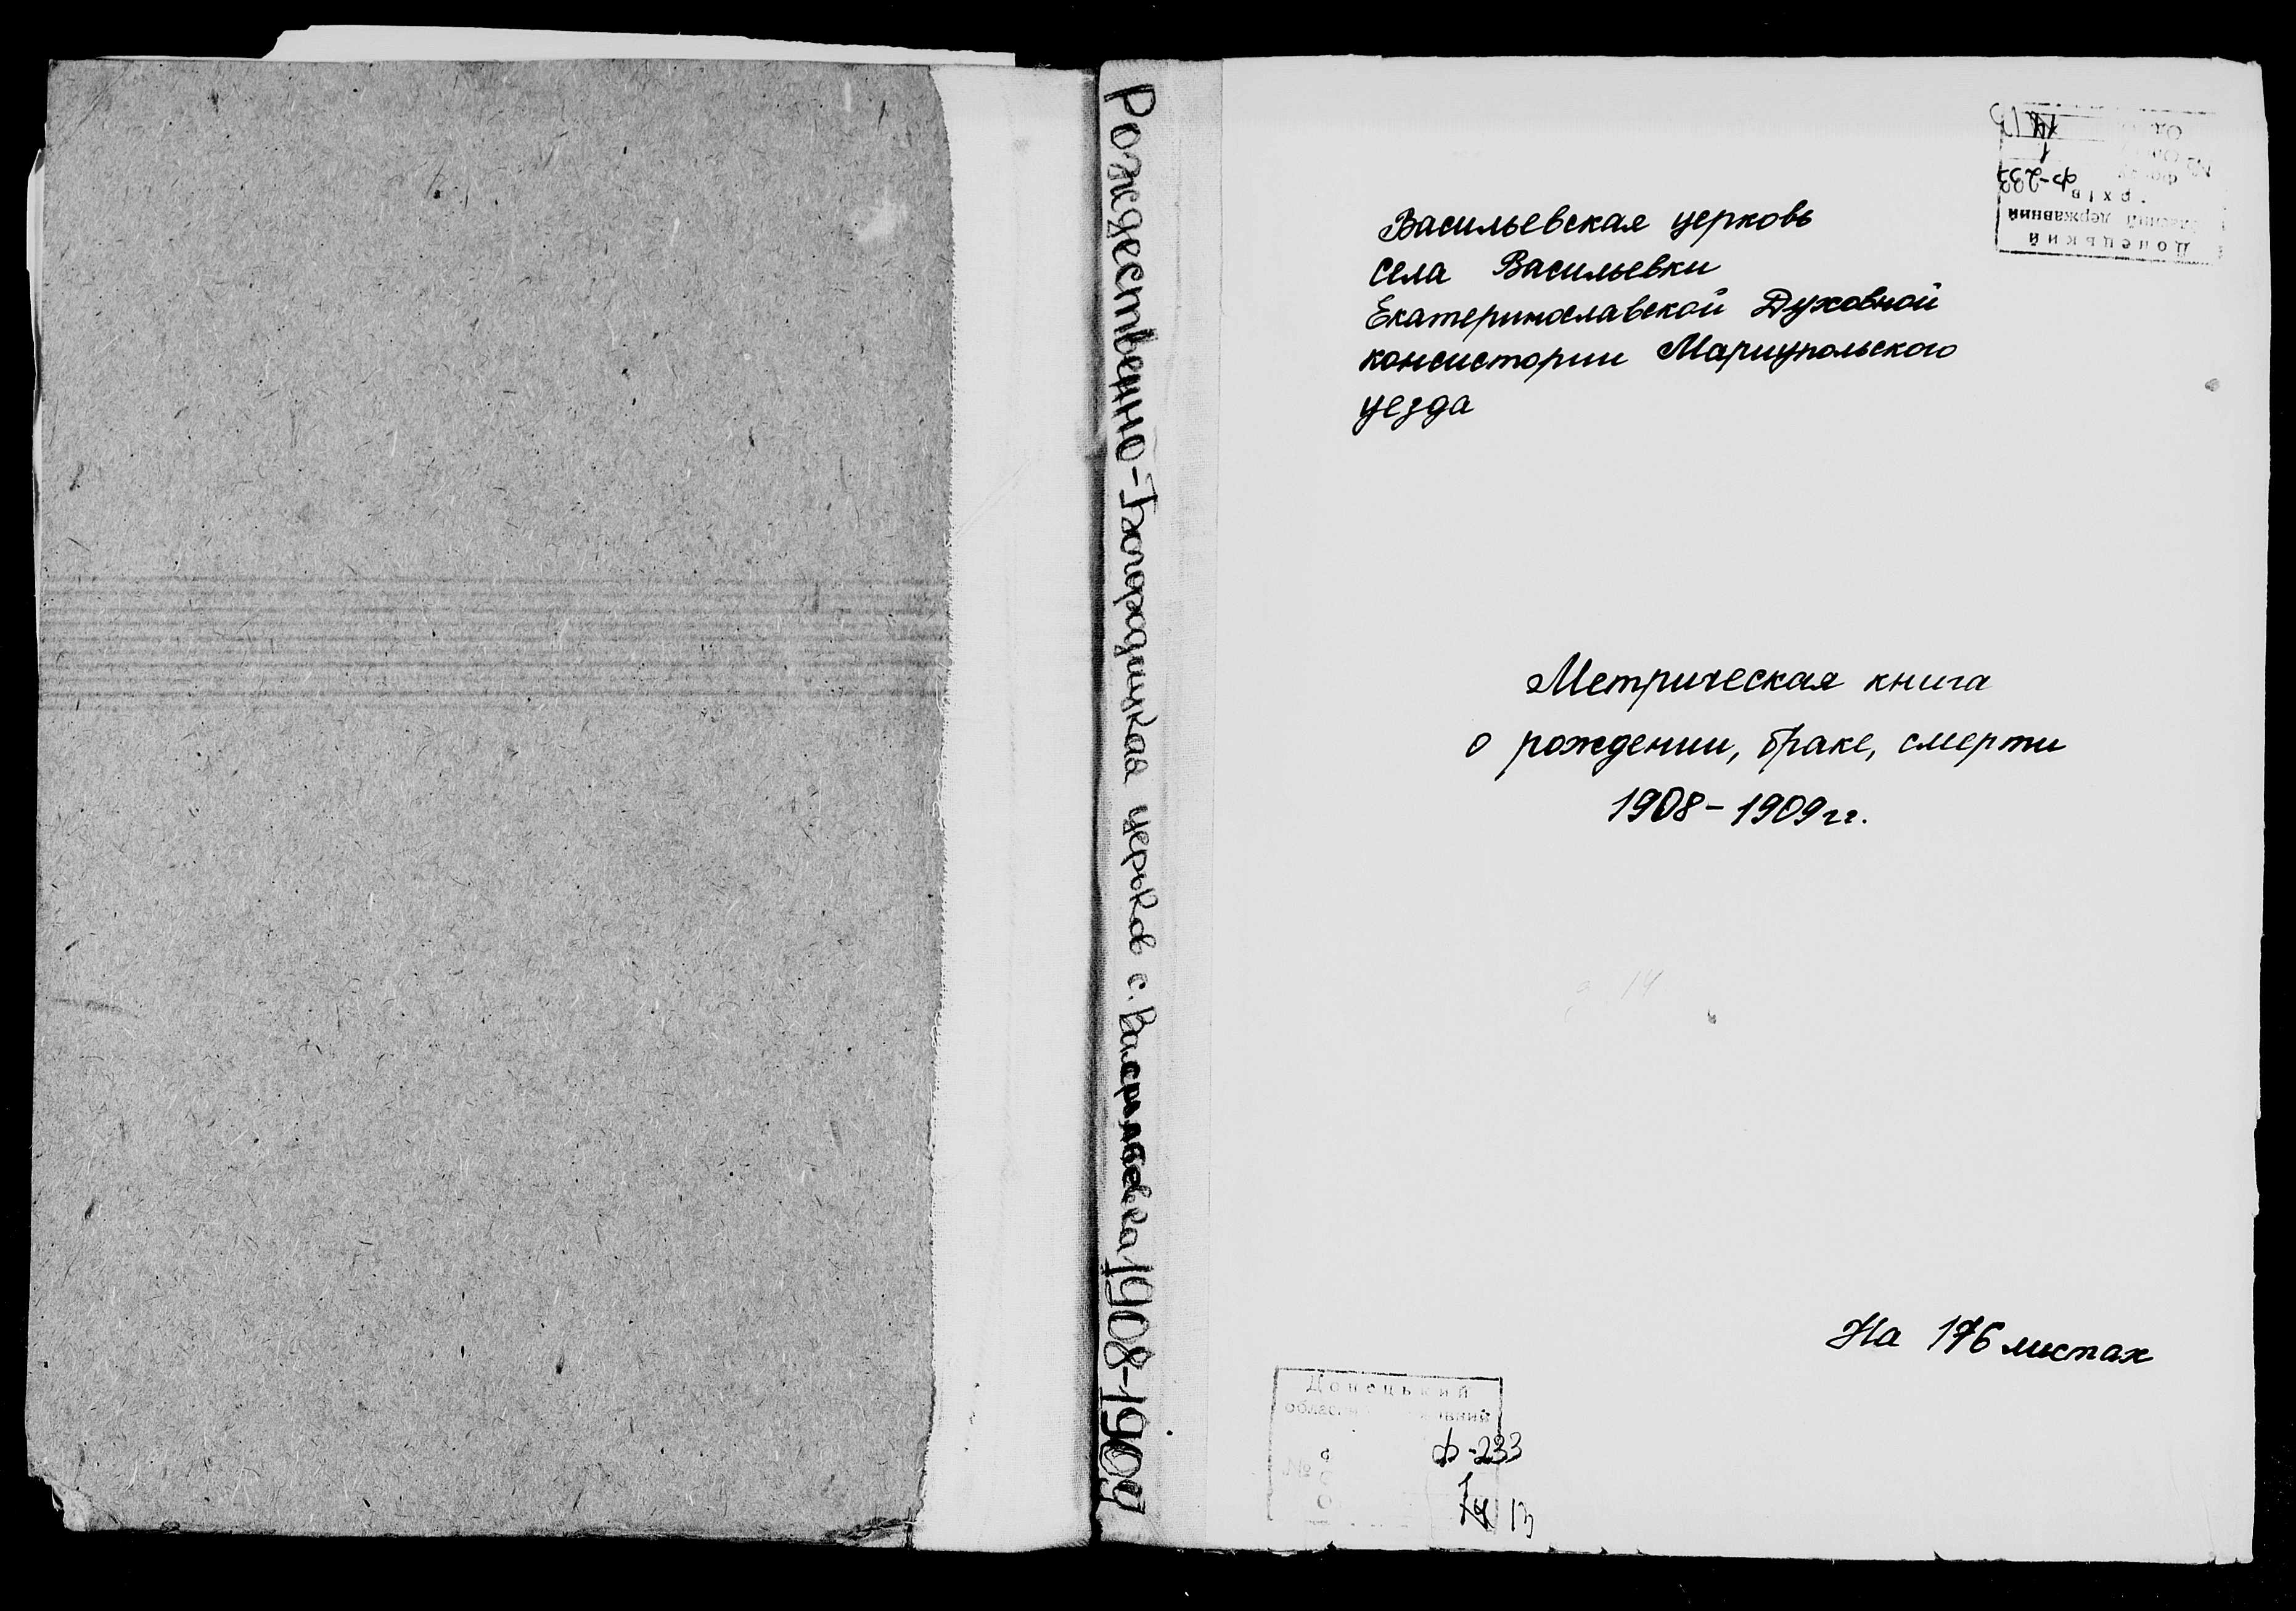 Рождественно-Богородицкая церковь с. Васильевка 1908-1909
Васильевская церковь
села Васильевки
Екатеринославской Духовной
консистории Мариупольского
уезда
Метрическая книга
о рождении, браке, смерти
1908-1909 гг.
На 176 листах
Донецький
ф-233
1
13
Донецький
державний
архів
ф-233
1
13